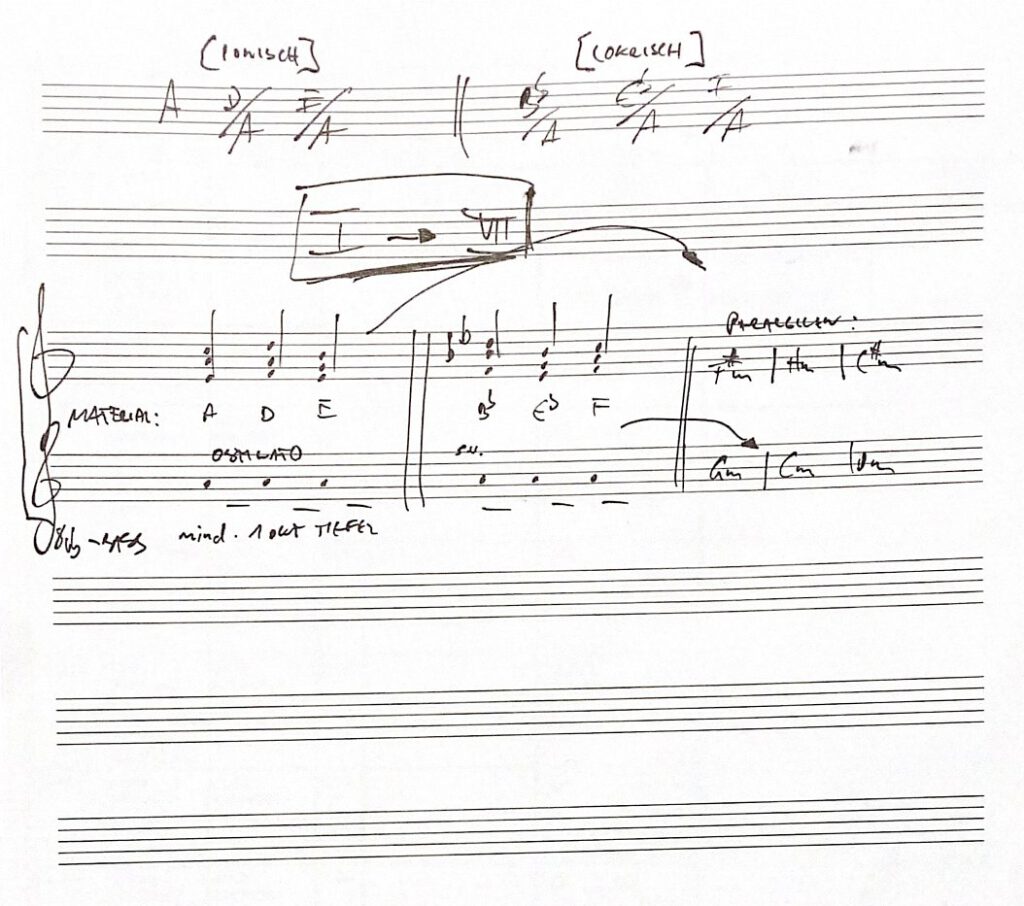 [IONISCH] [LOKRISCH]
A D/A E/A B♭/A E♭/A F/A
I → VII
PARALLELEN:
F#m | Hm | C#m
MATERIAL: A D E B♭ E♭ F
OSTINATO
Gm | Cm | Dm
8vb-BASS mind. 1 okt TIEFER